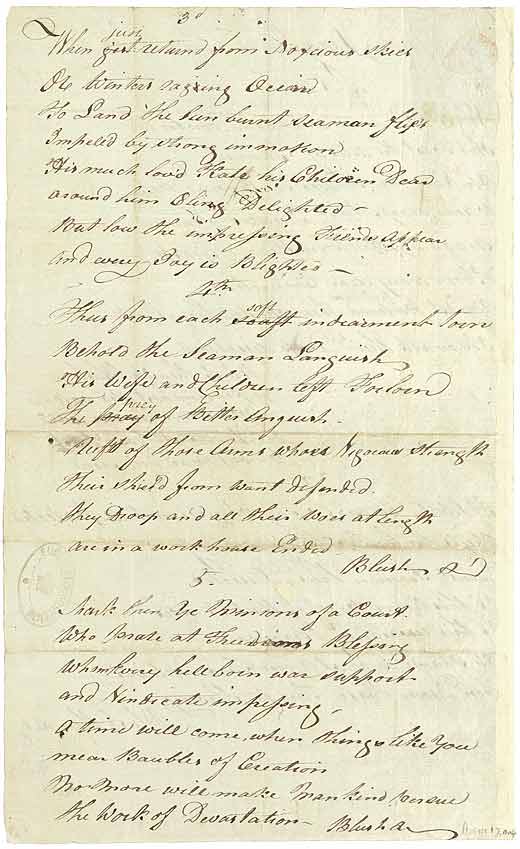 3d
just
When gust returnd from Noxious Skies
Or Winters raging Ocean
To Land the Sun burnt Seaman flies
Impeled by strong immotion
His much lovd Kate his Children Dear
around him Cling Delighted
But low the impressing Fiends Appear
and every Joy is Blighted
4th
soft
Thus from each soaft indearment torn
Behold the Seaman Languish
His Wife and Children left Forlorn
prey
The pray of Bitter Anguish
Reft of those Arms whoes Vigorous Strength
their shield from want defended
they Droop and all their woes at length
are in a work house Ended
Blush &c
5
Mark then Ye Minions of a Court
Who prate at Freedoms Blessing
Who every hell born war support
and Vindicate impressing
a time will come when things Like You
mear Baubles of Creation
No More will make Mankind persue
the Work of Devastation
Blush &c